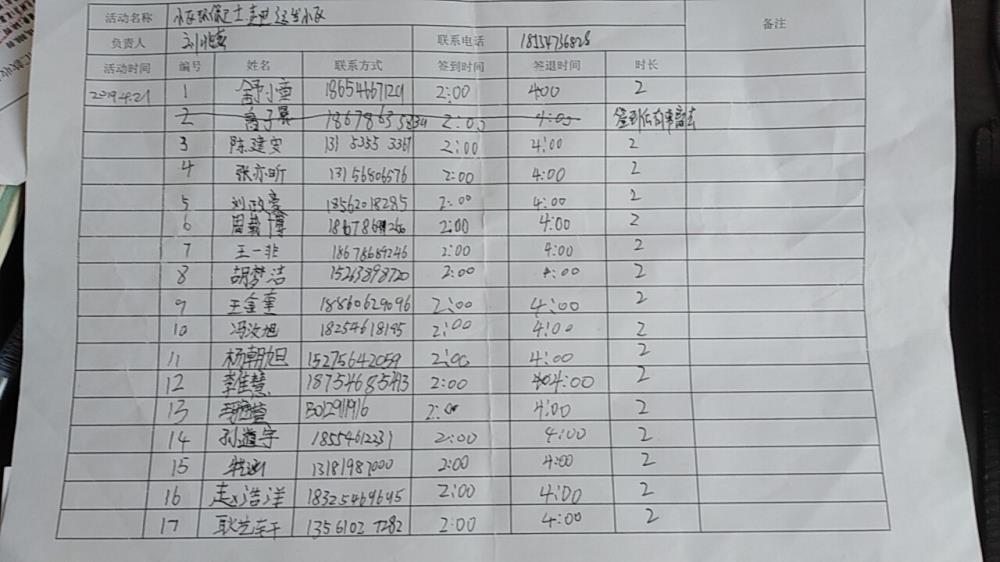 活动名称 小区环保卫士走进 小区
负责人 联系电话 18554736828 备注
活动时间 编号 姓名 联系方式 签到时间 签退时间 时长
2019.4.21 1 舒小雯 18654667201 2:00 4:00 2
2 18678635834 2:00 4:00
3 陈建安 131 5385 3367 2:00 4:00 2
4 张亦昕 13156806576 2:00 4:00 2
5 刘政豪 18562018285 2:00 4:00 2
6 周载博 2:00 4:00 2
7 王一非 18678689246 2:00 4:00 2
8 胡梦洁 15263898720 2:00 4:00 2
9 王金奎 18860629096 2:00 4:00 2
10 冯汝旭 18254618195 2:00 4:00 2
11 杨朝旭 15275642059 2:00 4:00 2
12 李佳慧 18754685413 2:00 4:00 2
13 2:00 4:00 2
14 孙道宇 18554612231 2:00 4:00 2
15 13181987000 2:00 4:00 2
16 赵浩洋 18325469645 2:00 4:00 2
17 1356102 7282 2:00 4:00 2